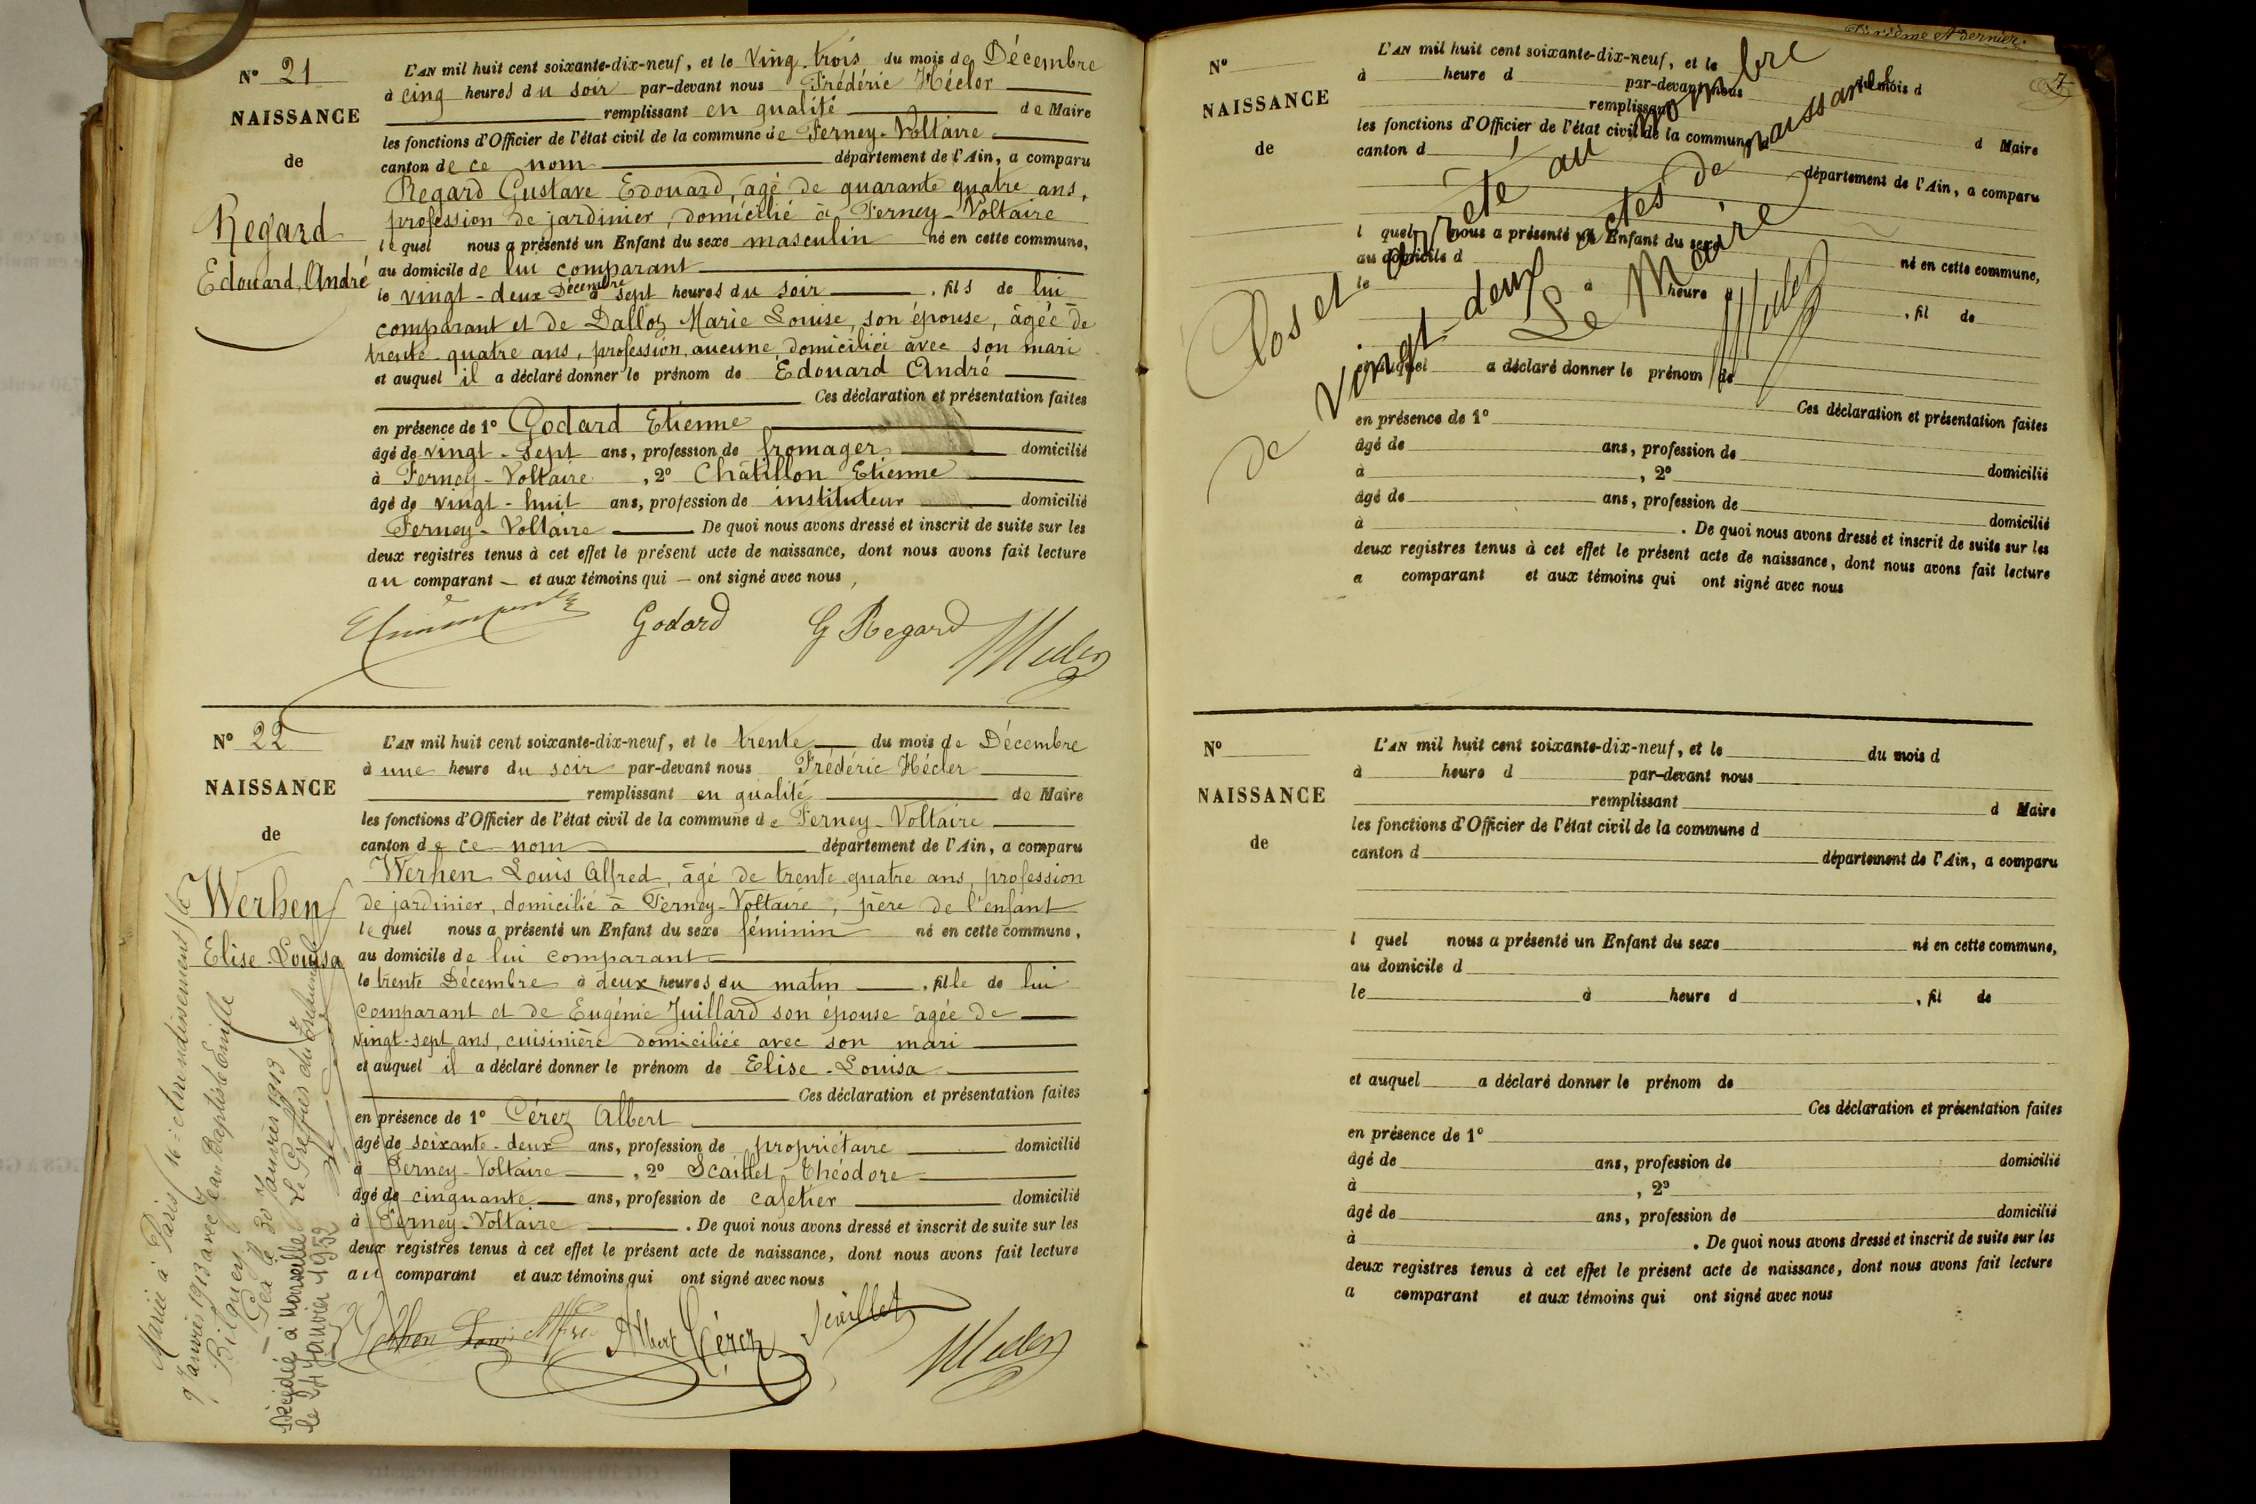 N° 21
NAISSANCE
de
Regard
Edouard, André
L'AN mil huit cent soixante-dix-neuf, et le Ving-trois du mois de Décembre
à cinq heures du soir par-devant nous Frédéric Hécler
remplissant en qualité de Maire
les fonctions d'Officier de l'état civil de la commune de Ferney-Voltaire
canton de ce nom département de l'Ain, a comparu
Regard Gustave Edouard, âgé de quarante quatre ans,
profession de jardinier, domicilié à Ferney-Voltaire
lequel nous a présenté un Enfant du sexe masculin né en cette commune,
au domicile de lui comparant
le vingt-deux Décembre à sept heures du soir, fils de lui
comparant et de Dalloz Marie Louise, son épouse, âgée de
trente-quatre ans, profession aucune, domiciliée avec son mari
et auquel il a déclaré donner le prénom de Edouard André
Ces déclaration et présentation faites
en présence de 1° Godard Etienne
âgé de vingt-sept ans, profession de fromager domicilié
à Ferney-Voltaire, 2° Châtillon Etienne
âgé de vingt-huit ans, profession de instituteur domicilié
Ferney-Voltaire De quoi nous avons dressé et inscrit de suite sur les
deux registres tenus à cet effet le présent acte de naissance, dont nous avons fait lecture
au comparant — et aux témoins qui — ont signé avec nous,
Godard G Regard
N° 22
NAISSANCE
de
Werhen
Elise-Louisa
L'AN mil huit cent soixante-dix-neuf, et le trente du mois de Décembre
à une heure du soir par-devant nous Frédéric Hécler
remplissant en qualité de Maire
les fonctions d'Officier de l'état civil de la commune de Ferney-Voltaire
canton de ce nom département de l'Ain, a comparu
Werhen Louis Alfred, âgé de trente quatre ans, profession
de jardinier, domicilié à Ferney-Voltaire, père de l'enfant
lequel nous a présenté un Enfant du sexe féminin né en cette commune,
au domicile de lui comparant
le trente Décembre à deux heures du matin, fille de lui
comparant et de Eugénie Juillard son épouse âgée de
vingt-sept ans, cuisinière domiciliée avec son mari
et auquel il a déclaré donner le prénom de Elise-Louisa
Ces déclaration et présentation faites
en présence de 1° Cérez Albert
âgé de soixante-deux ans, profession de propriétaire domicilié
à Ferney-Voltaire, 2° Scaillet Théodore
âgé de cinquante ans, profession de cafetier domicilié
à Ferney-Voltaire. De quoi nous avons dressé et inscrit de suite sur les
deux registres tenus à cet effet le présent acte de naissance, dont nous avons fait lecture
au comparant et aux témoins qui ont signé avec nous
Albert Cérez Scaillet
Mariée à Paris (16e arrondissement) le
9 Janvier 1913 avec Jean Baptiste Emile
Bilguey
Gex le 30 Janvier 1913
Le Greffier du Tribunal
Décédée à Marseille
le 24 Janvier 1952
Dixième et dernier
7
N°
NAISSANCE
de
L'AN mil huit cent soixante-dix-neuf, et le du mois d
à heure d par-devant nous
remplissant d Maire
les fonctions d'Officier de l'état civil de la commune d
canton d département de l'Ain, a comparu
l quel nous a présenté un Enfant du sexe né en cette commune,
au domicile d
le à heure d, fil de
et auquel a déclaré donner le prénom de
Ces déclaration et présentation faites
en présence de 1°
âgé de ans, profession de domicilié
à, 2°
âgé de ans, profession de domicilié
à. De quoi nous avons dressé et inscrit de suite sur les
deux registres tenus à cet effet le présent acte de naissance, dont nous avons fait lecture
a comparant et aux témoins qui ont signé avec nous
Clos et arrêté au nombre
de vingt-deux actes de naissance
Le Maire
N°
NAISSANCE
de
L'AN mil huit cent soixante-dix-neuf, et le du mois d
à heure d par-devant nous
remplissant d Maire
les fonctions d'Officier de l'état civil de la commune d
canton d département de l'Ain, a comparu
l quel nous a présenté un Enfant du sexe né en cette commune,
au domicile d
le à heure d, fil de
et auquel a déclaré donner le prénom de
Ces déclaration et présentation faites
en présence de 1°
âgé de ans, profession de domicilié
à, 2°
âgé de ans, profession de domicilié
à. De quoi nous avons dressé et inscrit de suite sur les
deux registres tenus à cet effet le présent acte de naissance, dont nous avons fait lecture
a comparant et aux témoins qui ont signé avec nous